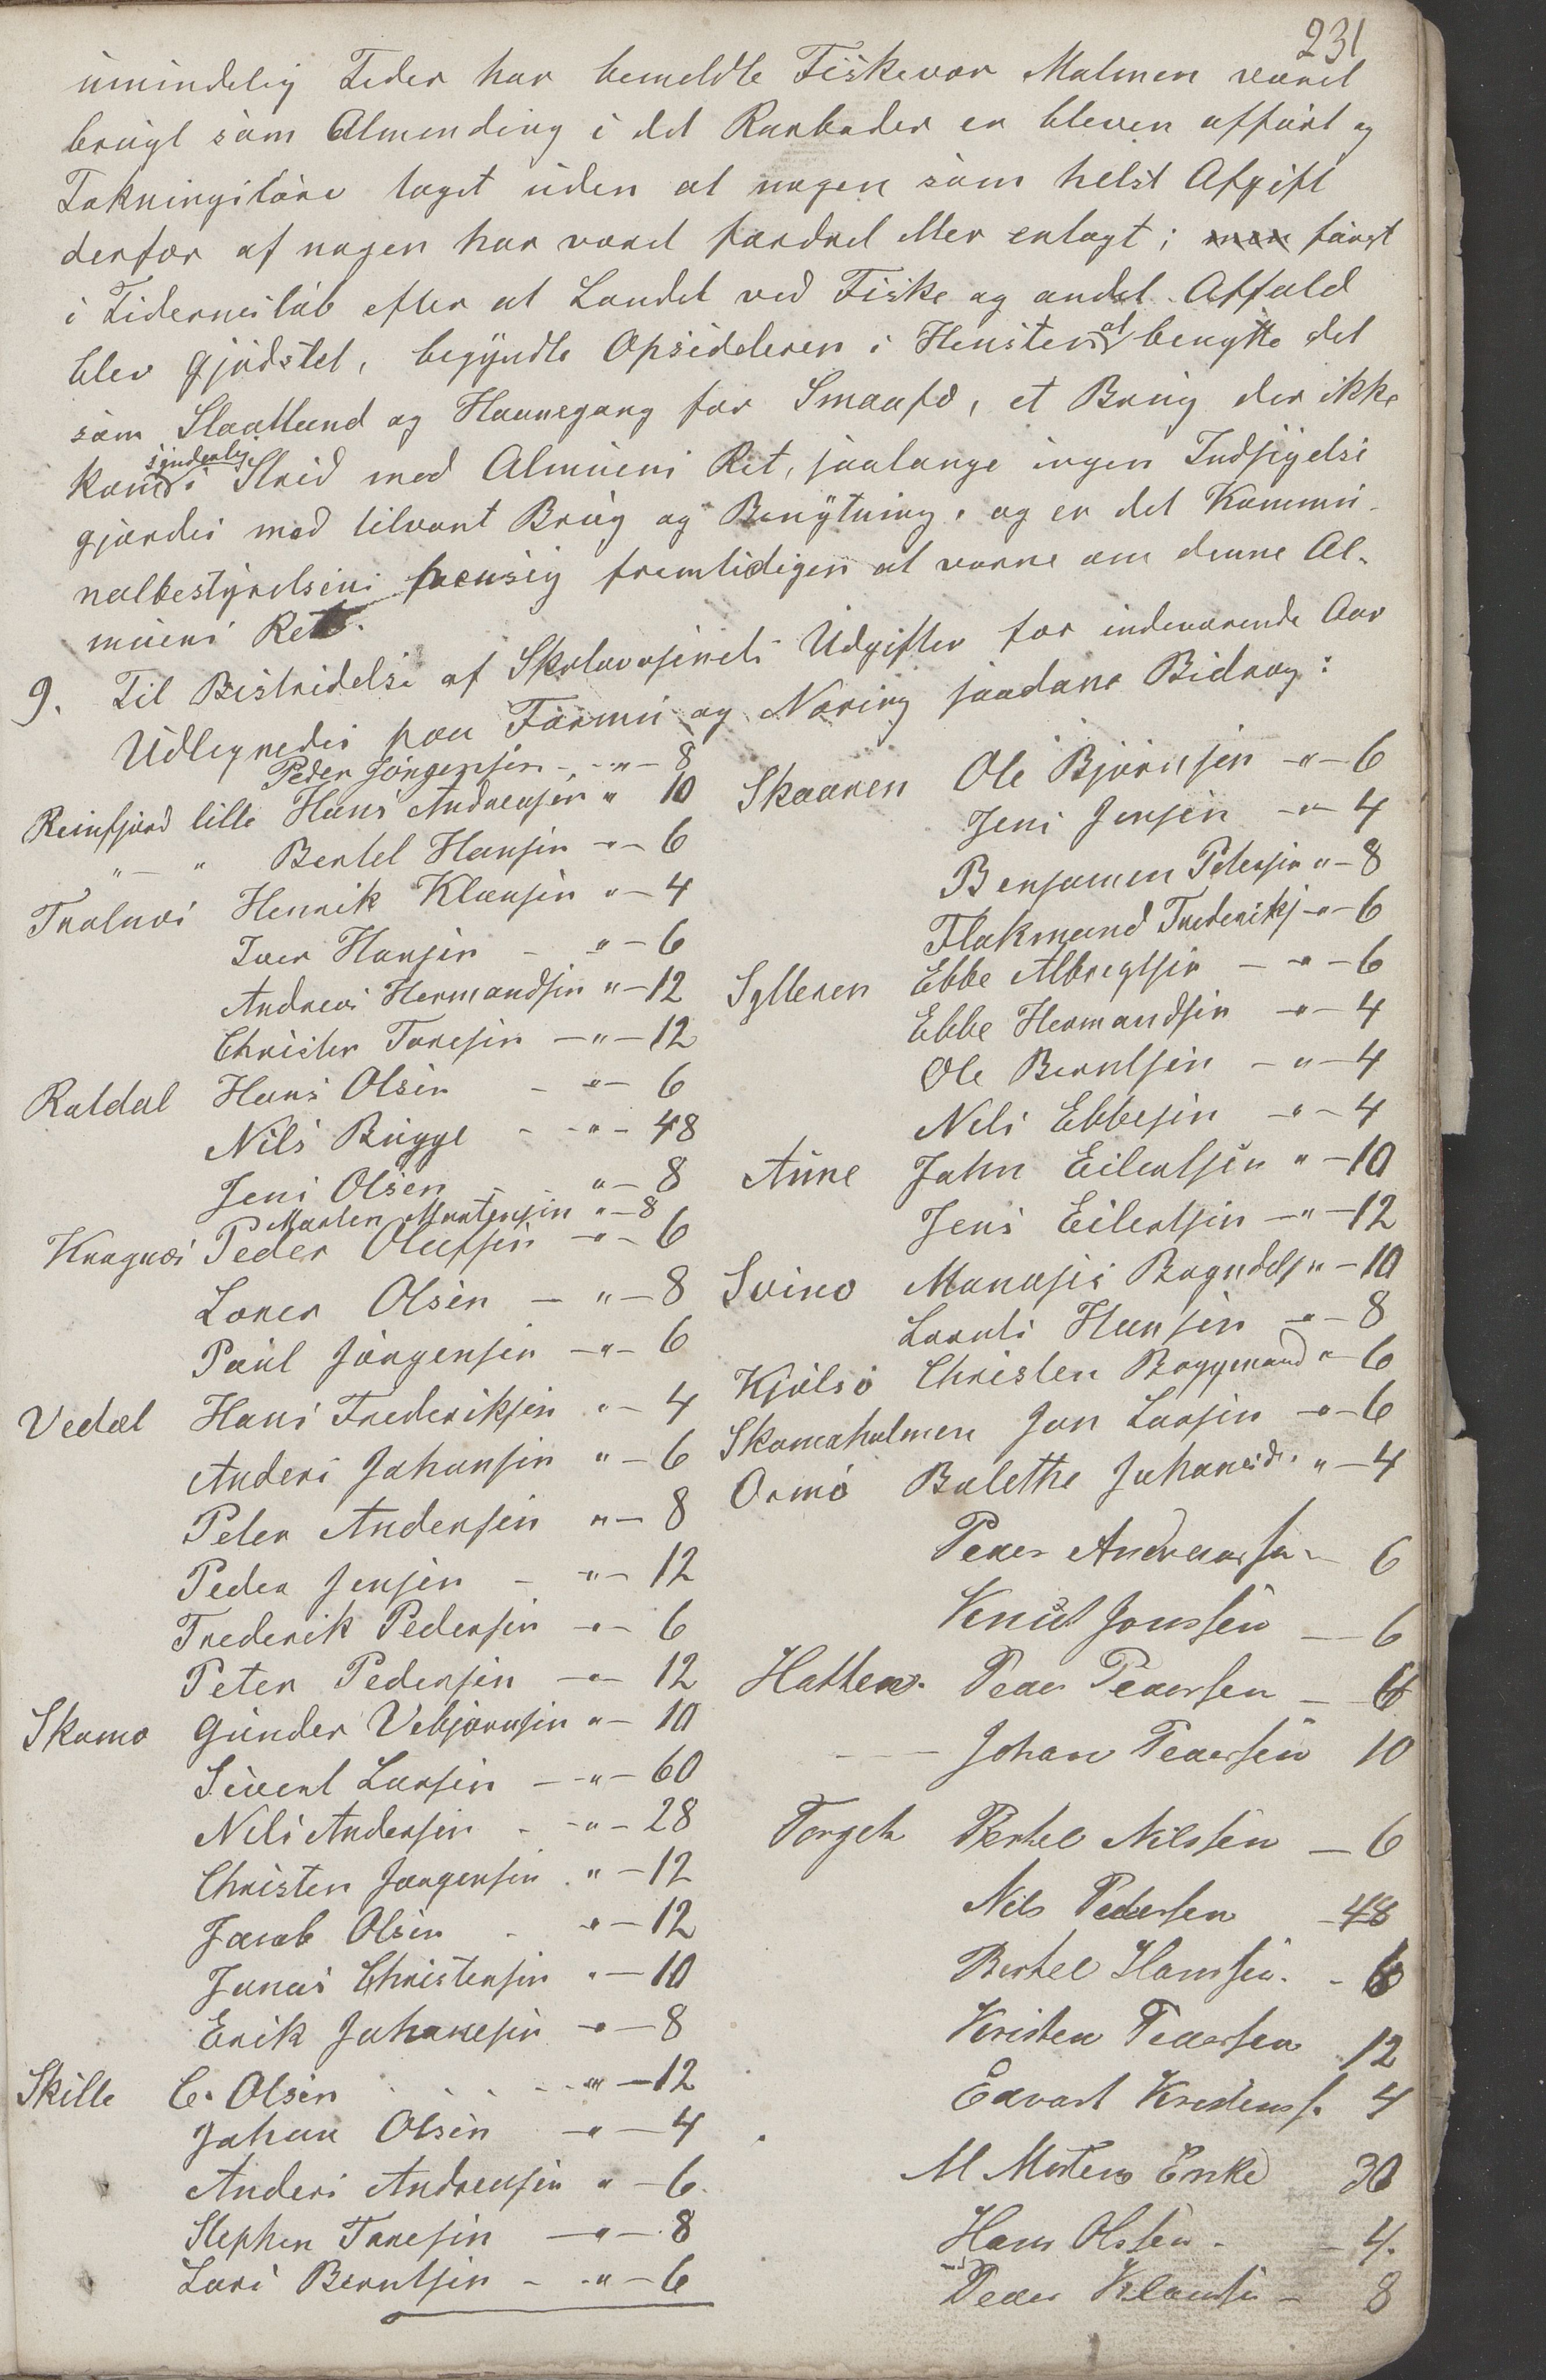 231
umindelig Tider har bemeldte Fiskevær Malmen været
brugt som Almending i det Rorboder er bleven opført og
Tækningstørv taget uden at nogen som helst Afgift
derfor af nogen har været fordret eller erlagt; men først
i Tidernesløb efter at Landet ved Fiske og andet Affald
blev gjødslet, begyndte Opsidderen i Hensteen at benytte det
som Slaatland og Havnegang for Smaafæ, et Brug der ikke
kom synderlig i Strid med Almuens Ret, saalænge ingen Indsigelse
gjordes mod tilvant Brug og Benyttning, og er det Kommu-
nalbestyrelsens fremtidigen at værne om denne Al-
muens Ret.
9. Til Bestridelse af Skolevæsenets Udgifter for indeværende Aar
Udlignedes paa Formue og Næring saadane Bidrag:
Peder Jörgensen - " - 8
Reinfjord lille Hans Andreasen " 10
" — " Bertel Hansen - " - 6
Tralnæs Henrik Klausen " - 4
Iver Hansen - " - 6
Andreas Hermandsen " - 12
Christen Toresen - " - 12
Raldal Hans Olsen - " - 6
Nils Bugge - " - 48
Jens Olsen - " - 8
Morten Mortensen " - 8
Kragnæs Peder Olufsen - " - 6
Loren Olsen - " - 8
Paul Jörgensen - " - 6
Vedal Hans Frederiksen " - 4
Anders Johansen " - 6
Peter Andersen " - 8
Peder Jensen - " - 12
Frederik Pedersen - " - 6
Peter Pedersen - " - 12
Skomo Gunder Vebjørnsen " - 10
Sivert Larsen - " - 60
Nils Andersen - " - 28
Christen Jørgensen " - 12
Jacob Olsen - " - 12
Jonas Christensen " - 10
Erik Johanesen - " - 8
Skille C. Olsen - " - 12
Johan Olsen - " - 4
Anders Andreasen " - 6.
Stephen Toresen - " - 8
Lars Berntsen - " - 6
Skaaren Ole Bjørnsen - " - 6
Jens Jensen - " - 4
Benjamen Petersen " - 8
Flakmand Frederiks - " - 6
Sylleren Ebbe Albregtsen - " - 6
Ebbe Hermandsen - " - 4
Ole Berntsen - " - 4
Nils Ebbesen - " - 4
Aune John Eilertsen " - 10
Jens Eilertsen - " - 12
Svino Manases Bagndels " - 10
Lornts Hansen - " - 8
Kjølsø Christen Byggmand " - 6
Skomaholmen Jon Larsen - " - 6
Ormø Balethe Johansd. " - 4
Peder Andreassen - 6
Knud Jonssen — 6
Hatten. Peder Pedersen — 6
— Johan Pedersen 10
Torget Bertel Nilssen — 6
Nils Pedersen - 48
Bertel Hanssen. - 6
Kristen Pedersen 12
Edvart Kristenss. 4
M Mortens Enke 30
Hans Olssen - 4.
Peder Klausen - 8